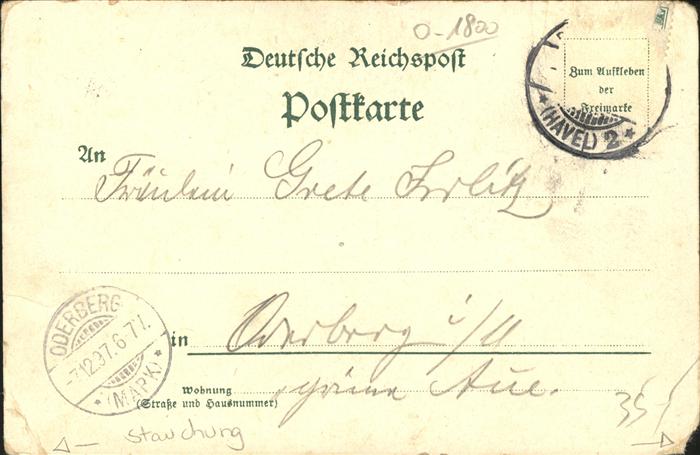 0-1800
Deutsche Reichspost
Postkarte
Zum Aufkleben
der
Freimarke
(HAVEL) 2
An
Fräulein Grete
in Oderberg i/M
Wohnung grüne Aue.
(Straße und Hausnummer)
ODERBERG
7.12.97. 6-7 N.
(MARK)
35
Stauchung